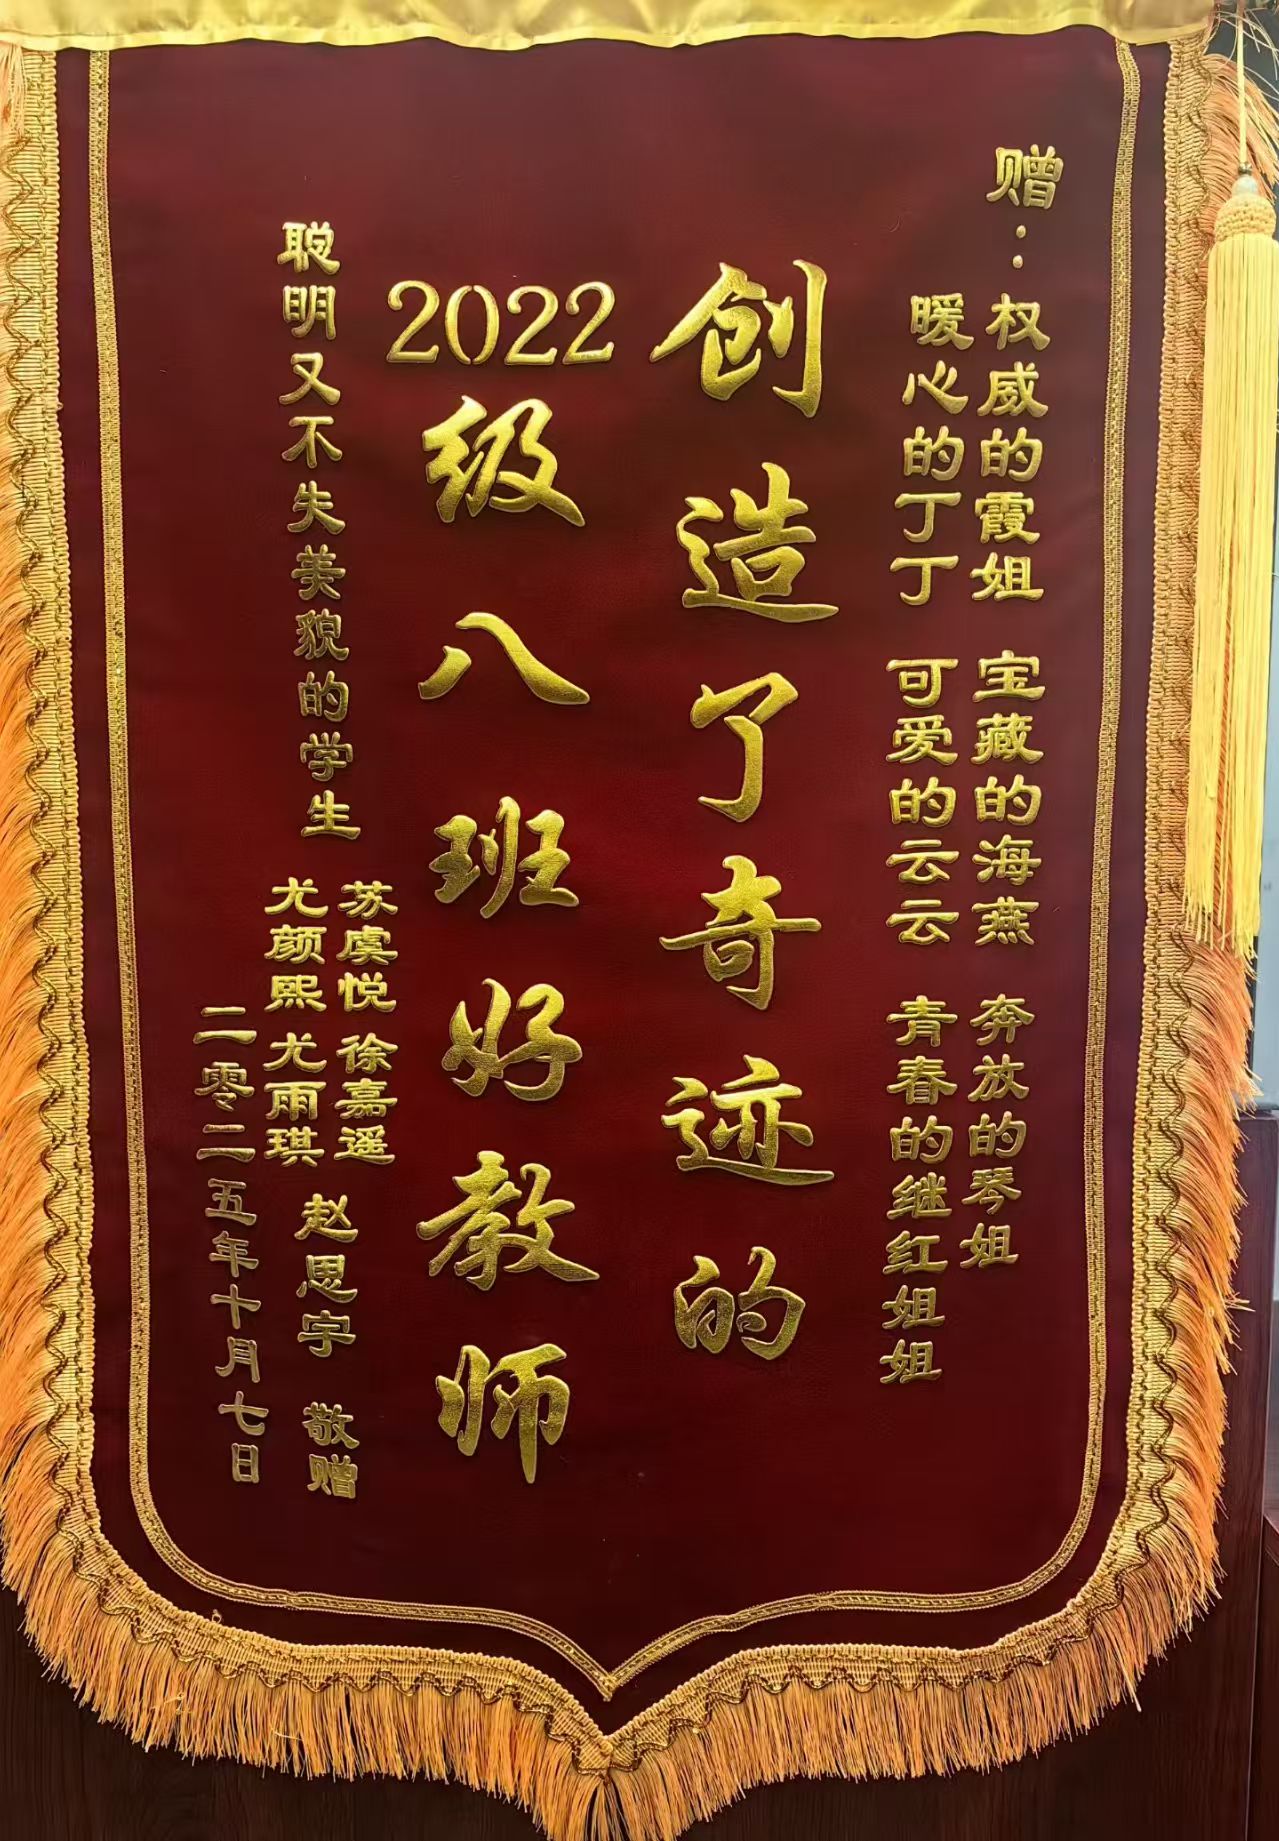 赠：权威的霞姐 宝藏的海燕 奔放的琴姐
暖心的丁丁 可爱的云云 青春的继红姐姐
创造了奇迹的
2022级八班好教师
聪明又不失美貌的学生
苏虞悦 徐嘉遥
尤颜熙 尤雨琪
赵思宇 敬赠
二零二五年十月七日